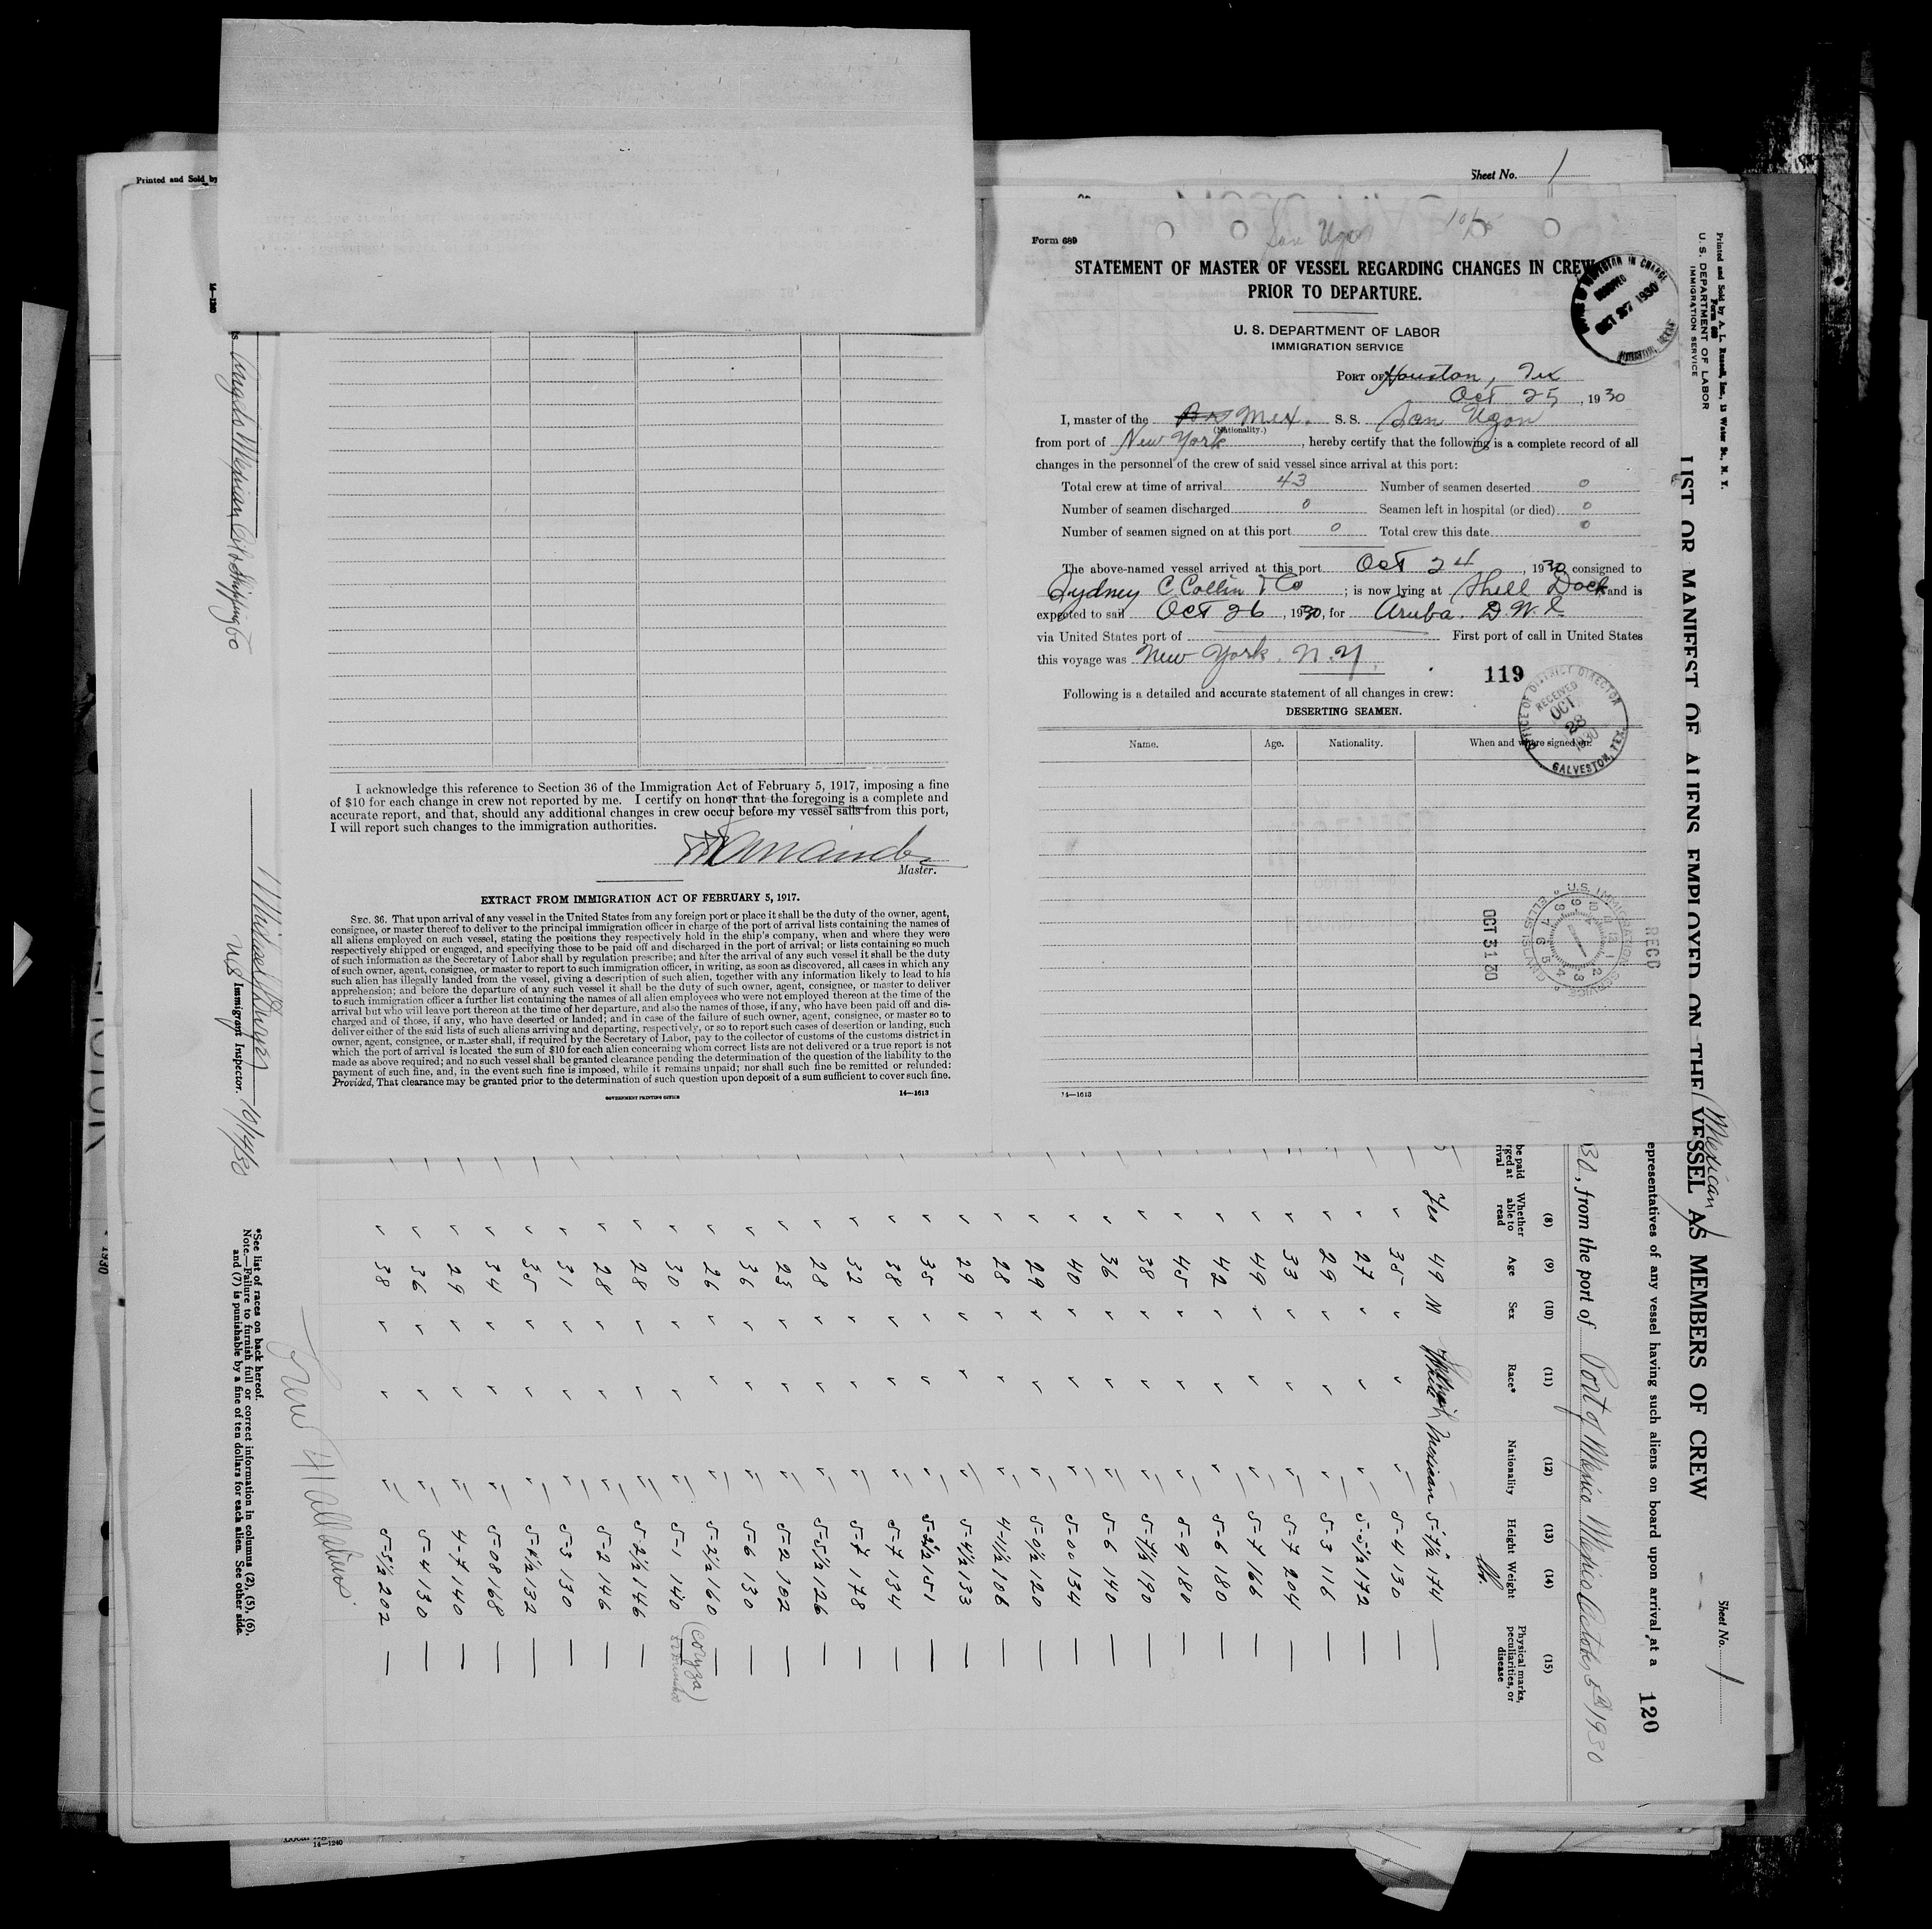 Printed and Sold by
Sheet No. 1
14—1240
Form 689
STATEMENT OF MASTER OF VESSEL REGARDING CHANGES IN CREW
PRIOR TO DEPARTURE.
U. S. DEPARTMENT OF LABOR
IMMIGRATION SERVICE
OCT 27 1930
PORT OF Houston, Tex
Oct 25, 1930
I, master of the Mex. S. S. San Ugon
(Nationality.)
from port of New York, hereby certify that the following is a complete record of all
changes in the personnel of the crew of said vessel since arrival at this port:
Total crew at time of arrival 43 Number of seamen deserted 0
Number of seamen discharged 0 Seamen left in hospital (or died) 0
Number of seamen signed on at this port 0 Total crew this date 0
The above-named vessel arrived at this port Oct 24, 1930 consigned to
Sydney C. Collin & Co; is now lying at Shell Dock and is
expected to sail Oct 26, 1930, for Aruba. D.W.I.
via United States port of First port of call in United States
this voyage was New York. N.Y.
119
Following is a detailed and accurate statement of all changes in crew:
DESERTING SEAMEN.
OFFICE OF DISTRICT DIRECTOR
RECEIVED
OCT
28
1930
GALVESTON, TEX.
Name. Age. Nationality. When and where signed on.
U.S. IMMIGRATION SERVICE
OCT 31 30
RECD
14—1613
I acknowledge this reference to Section 36 of the Immigration Act of February 5, 1917, imposing a fine
of $10 for each change in crew not reported by me. I certify on honor that the foregoing is a complete and
accurate report, and that, should any additional changes in crew occur before my vessel sails from this port,
I will report such changes to the immigration authorities.
Master.
EXTRACT FROM IMMIGRATION ACT OF FEBRUARY 5, 1917.
SEC. 36. That upon arrival of any vessel in the United States from any foreign port or place it shall be the duty of the owner, agent,
consignee, or master thereof to deliver to the principal immigration officer in charge of the port of arrival lists containing the names of
all aliens employed on such vessel, stating the positions they respectively hold in the ship's company, when and where they were
respectively shipped or engaged, and specifying those to be paid off and discharged in the port of arrival; or lists containing so much
of such information as the Secretary of Labor shall by regulation prescribe; and after the arrival of any such vessel it shall be the duty
of such owner, agent, consignee, or master to report to such immigration officer, in writing, as soon as discovered, all cases in which any
such alien has illegally landed from the vessel, giving a description of such alien, together with any information likely to lead to his
apprehension; and before the departure of any such vessel it shall be the duty of such owner, agent, consignee, or master to deliver
to such immigration officer a further list containing the names of all alien employees who were not employed thereon at the time of the
arrival but who will leave port thereon at the time of her departure, and also the names of those, if any, who have been paid off and dis-
charged and of those, if any, who have deserted or landed; and in case of the failure of such owner, agent, consignee, or master so to
deliver either of the said lists of such aliens arriving and departing, respectively, or so to report such cases of desertion or landing, such
owner, agent, consignee, or master shall, if required by the Secretary of Labor, pay to the collector of customs of the customs district in
which the port of arrival is located the sum of $10 for each alien concerning whom correct lists are not delivered or a true report is not
made as above required; and no such vessel shall be granted clearance pending the determination of the question of the liability to the
payment of such fine, and, in the event such fine is imposed, while it remains unpaid; nor shall such fine be remitted or refunded:
Provided, That clearance may be granted prior to the determination of such question upon deposit of a sum sufficient to cover such fine.
GOVERNMENT PRINTING OFFICE 14—1613
Printed and Sold by A. L. Russell, Inc., 13 Water St., N. Y.
Form 689
U. S. DEPARTMENT OF LABOR
IMMIGRATION SERVICE
Sheet No. 1
Mexican
LIST OR MANIFEST OF ALIENS EMPLOYED ON THE VESSEL AS MEMBERS OF CREW
epresentatives of any vessel having such aliens on board upon arrival at a 120
30, from the port of Port of Mexico Mexico October 5th 1930
(8) (9) (10) (11) (12) (13) (14) (15)
be paid
rged at
rival
Whether able to read Age Sex Race* Nationality Height Weight Physical marks, peculiarities, or disease
lbs.
Yes 49 M Mexican 5-7½ 174 —
35 5-4 130 —
27 5-5½ 172 —
29 5-3 116 —
33 5-7 204 —
49 5-7 166 —
42 5-6 180 —
45 5-9 180 —
38 5-7½ 190 —
36 5-6 140 —
40 5-00 134 —
29 5-0½ 120 —
28 4-11½ 106 —
29 5-4½ 133 —
35 5-2½ 151 —
38 5-7 134 —
32 5-7 178 —
28 5-5½ 126 —
23 5-2 102 —
36 5-6 130 —
26 5-2½ 160 — (coryza)
30 5-1 140
28 5-2½ 146 —
28 5-2 146 —
31 5-3 130 —
35 5-4½ 132 —
34 5-08 168 —
29 4-7 140 —
36 5-4 130 —
38 5-5½ 202 —
Anglo Mexican Oil Shipping Co
U.S. Immigrant Inspector. 10/14/30
*See list of races on back hereof.
Note.—Failure to furnish full or correct information in columns (2), (5), (6),
and (7) is punishable by a fine of ten dollars for each alien. See other side.
14—1240